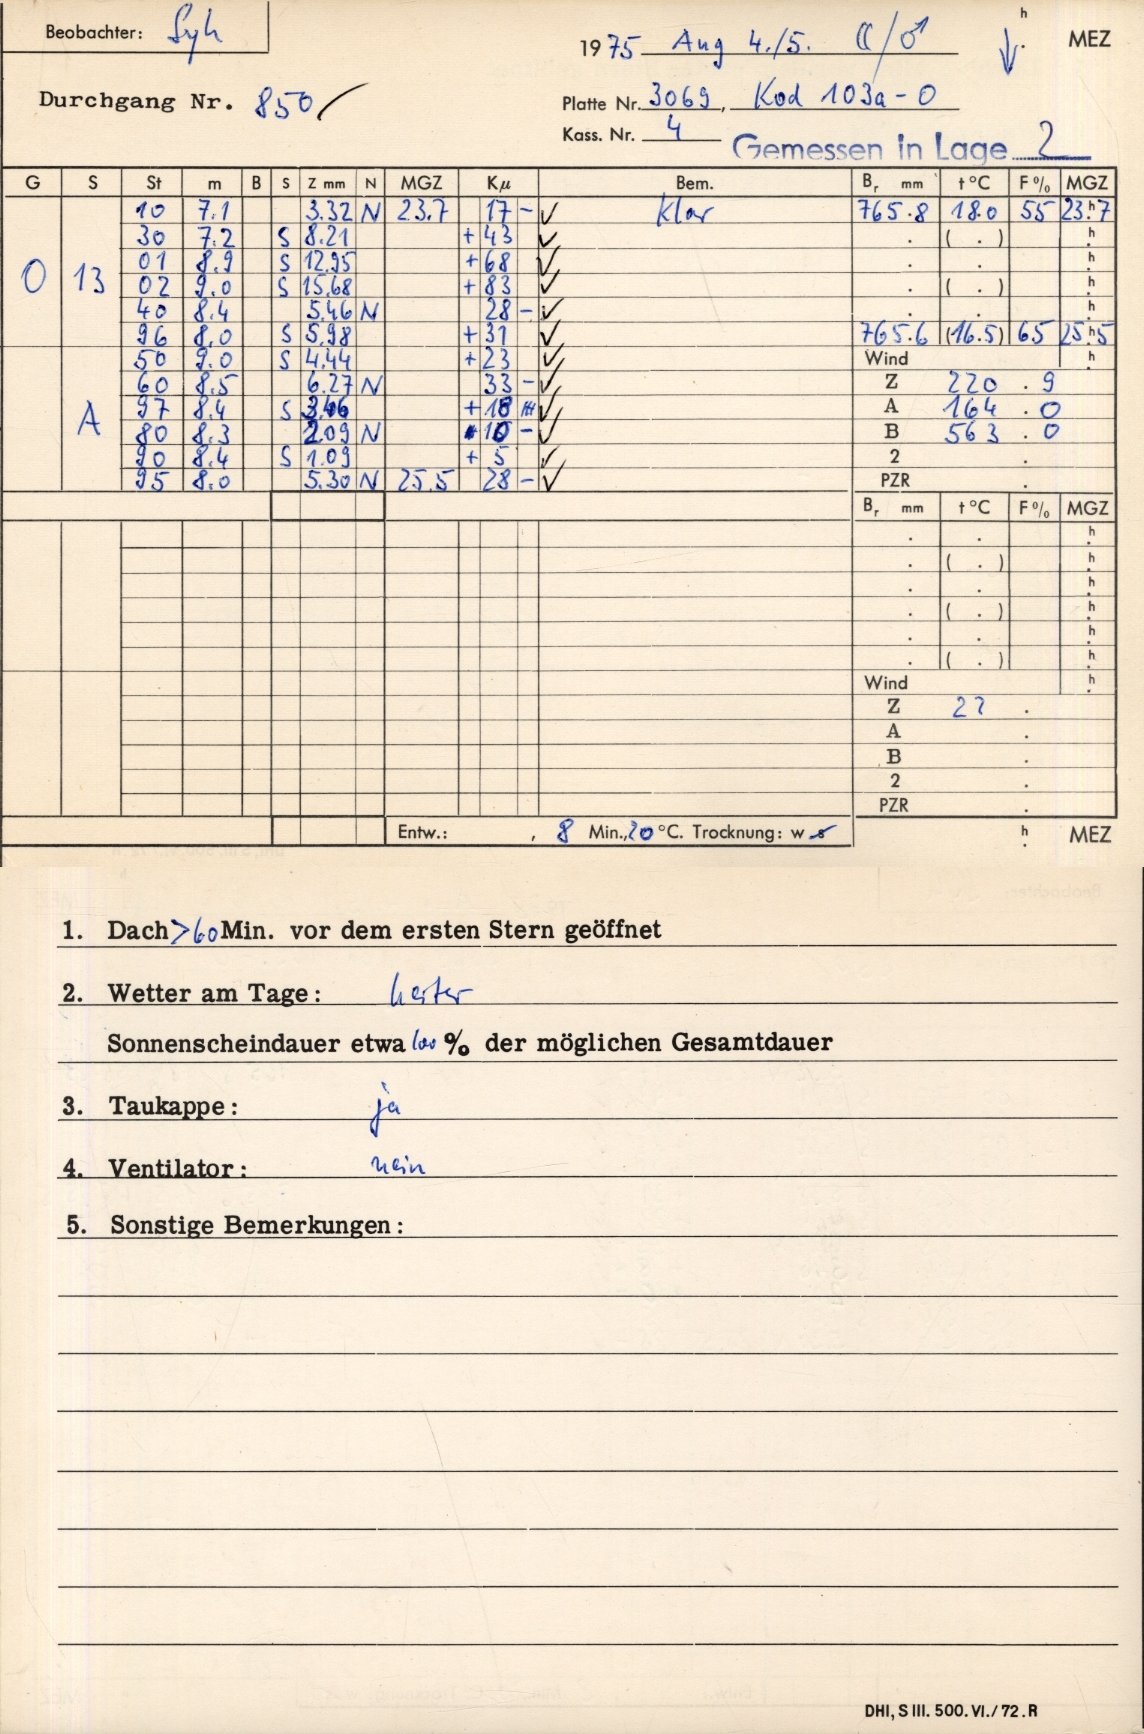 Beobachter: Syh
1975 Aug 4./5. ☾/♂ h MEZ
Durchgang Nr. 850
Platte Nr. 3069, Kod 103a-O
Kass. Nr. 4
Gemessen in Lage 2
G S St m B S Z mm N MGZ Kμ Bem. Br mm t°C F% MGZ
10 7.1 3.32 N 23.7 17 - ✓ klar 765.8 18.0 55 23.h7
30 7.2 S 8.21 + 43 ✓ . ( . ) h
01 8.9 S 12.95 + 68 ✓ . . h
O 13 02 9.0 S 15.68 + 83 ✓ . ( . ) h
40 8.4 5.46 N 28 - ✓ . . h
96 8.0 S 5.98 + 31 ✓ 765.6 (16.5) 65 25.h5
50 9.0 S 4.44 + 23 ✓ Wind h
60 8.5 6.27 N 33 - ✓ Z 220 . 9
A 97 8.4 S + ✓ A 164 . 0
80 8.3 2.09 N 10 - ✓ B 563 . 0
90 8.4 S 1.09 + 5 ✓ 2 .
95 8.0 5.30 N 25.5 28 - ✓ PZR .
Br mm t°C F% MGZ
. . h
. ( . ) h
. . h
. ( . ) h
. . h
. ( . ) h
Wind h
Z 22 .
A .
B .
2 .
PZR .
Entw.: , 8 Min., 20 °C. Trocknung: w s
h MEZ
1. Dach >60 Min. vor dem ersten Stern geöffnet
2. Wetter am Tage: heiter
Sonnenscheindauer etwa 100 % der möglichen Gesamtdauer
3. Taukappe: ja
4. Ventilator: nein
5. Sonstige Bemerkungen:
DHI, S III. 500. VI./72. R